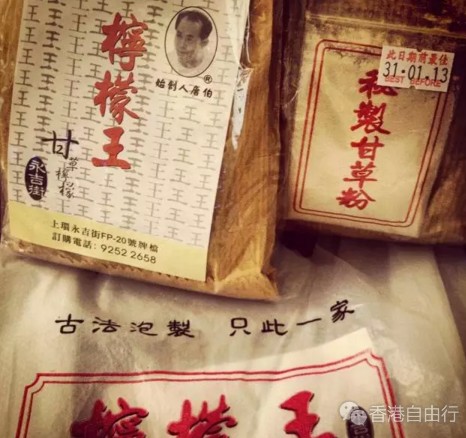 檸檬王
®
始創人唐伯
甘草檸檬
永吉街
上環永吉街FP-20號牌檔
訂購電話: 9252 2658
此日期前最佳
31·01·13
BEST BEFORE
秘製甘草粉
古法泡製 只此一家
檸檬王
香港自由行